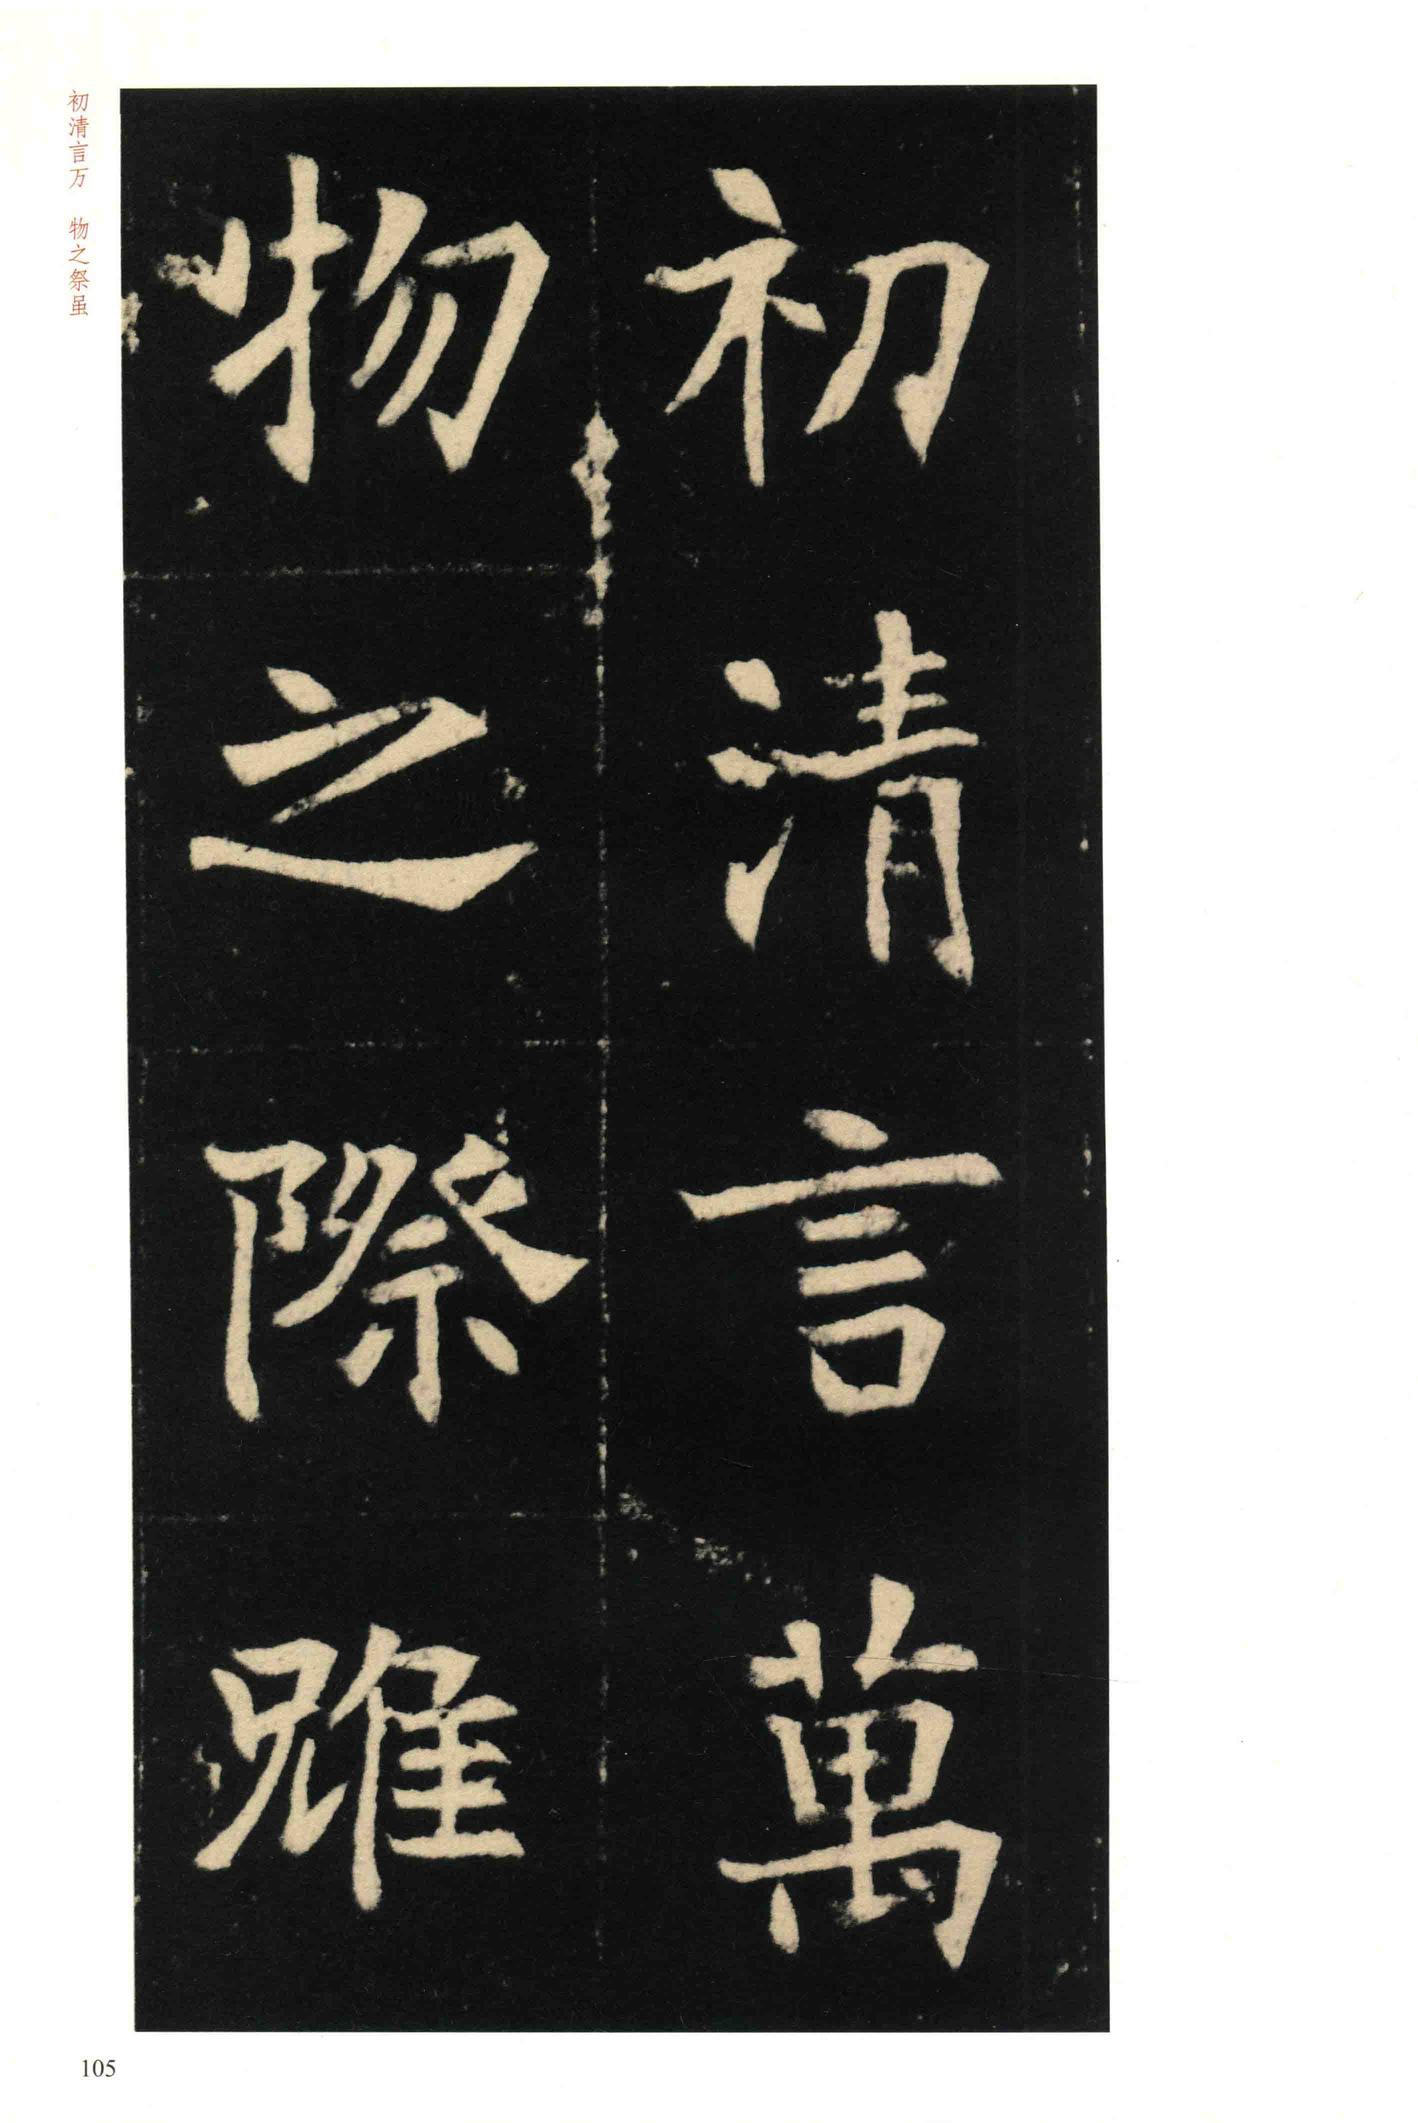 初清言萬
物之際雖
初清言万 物之祭虽
105